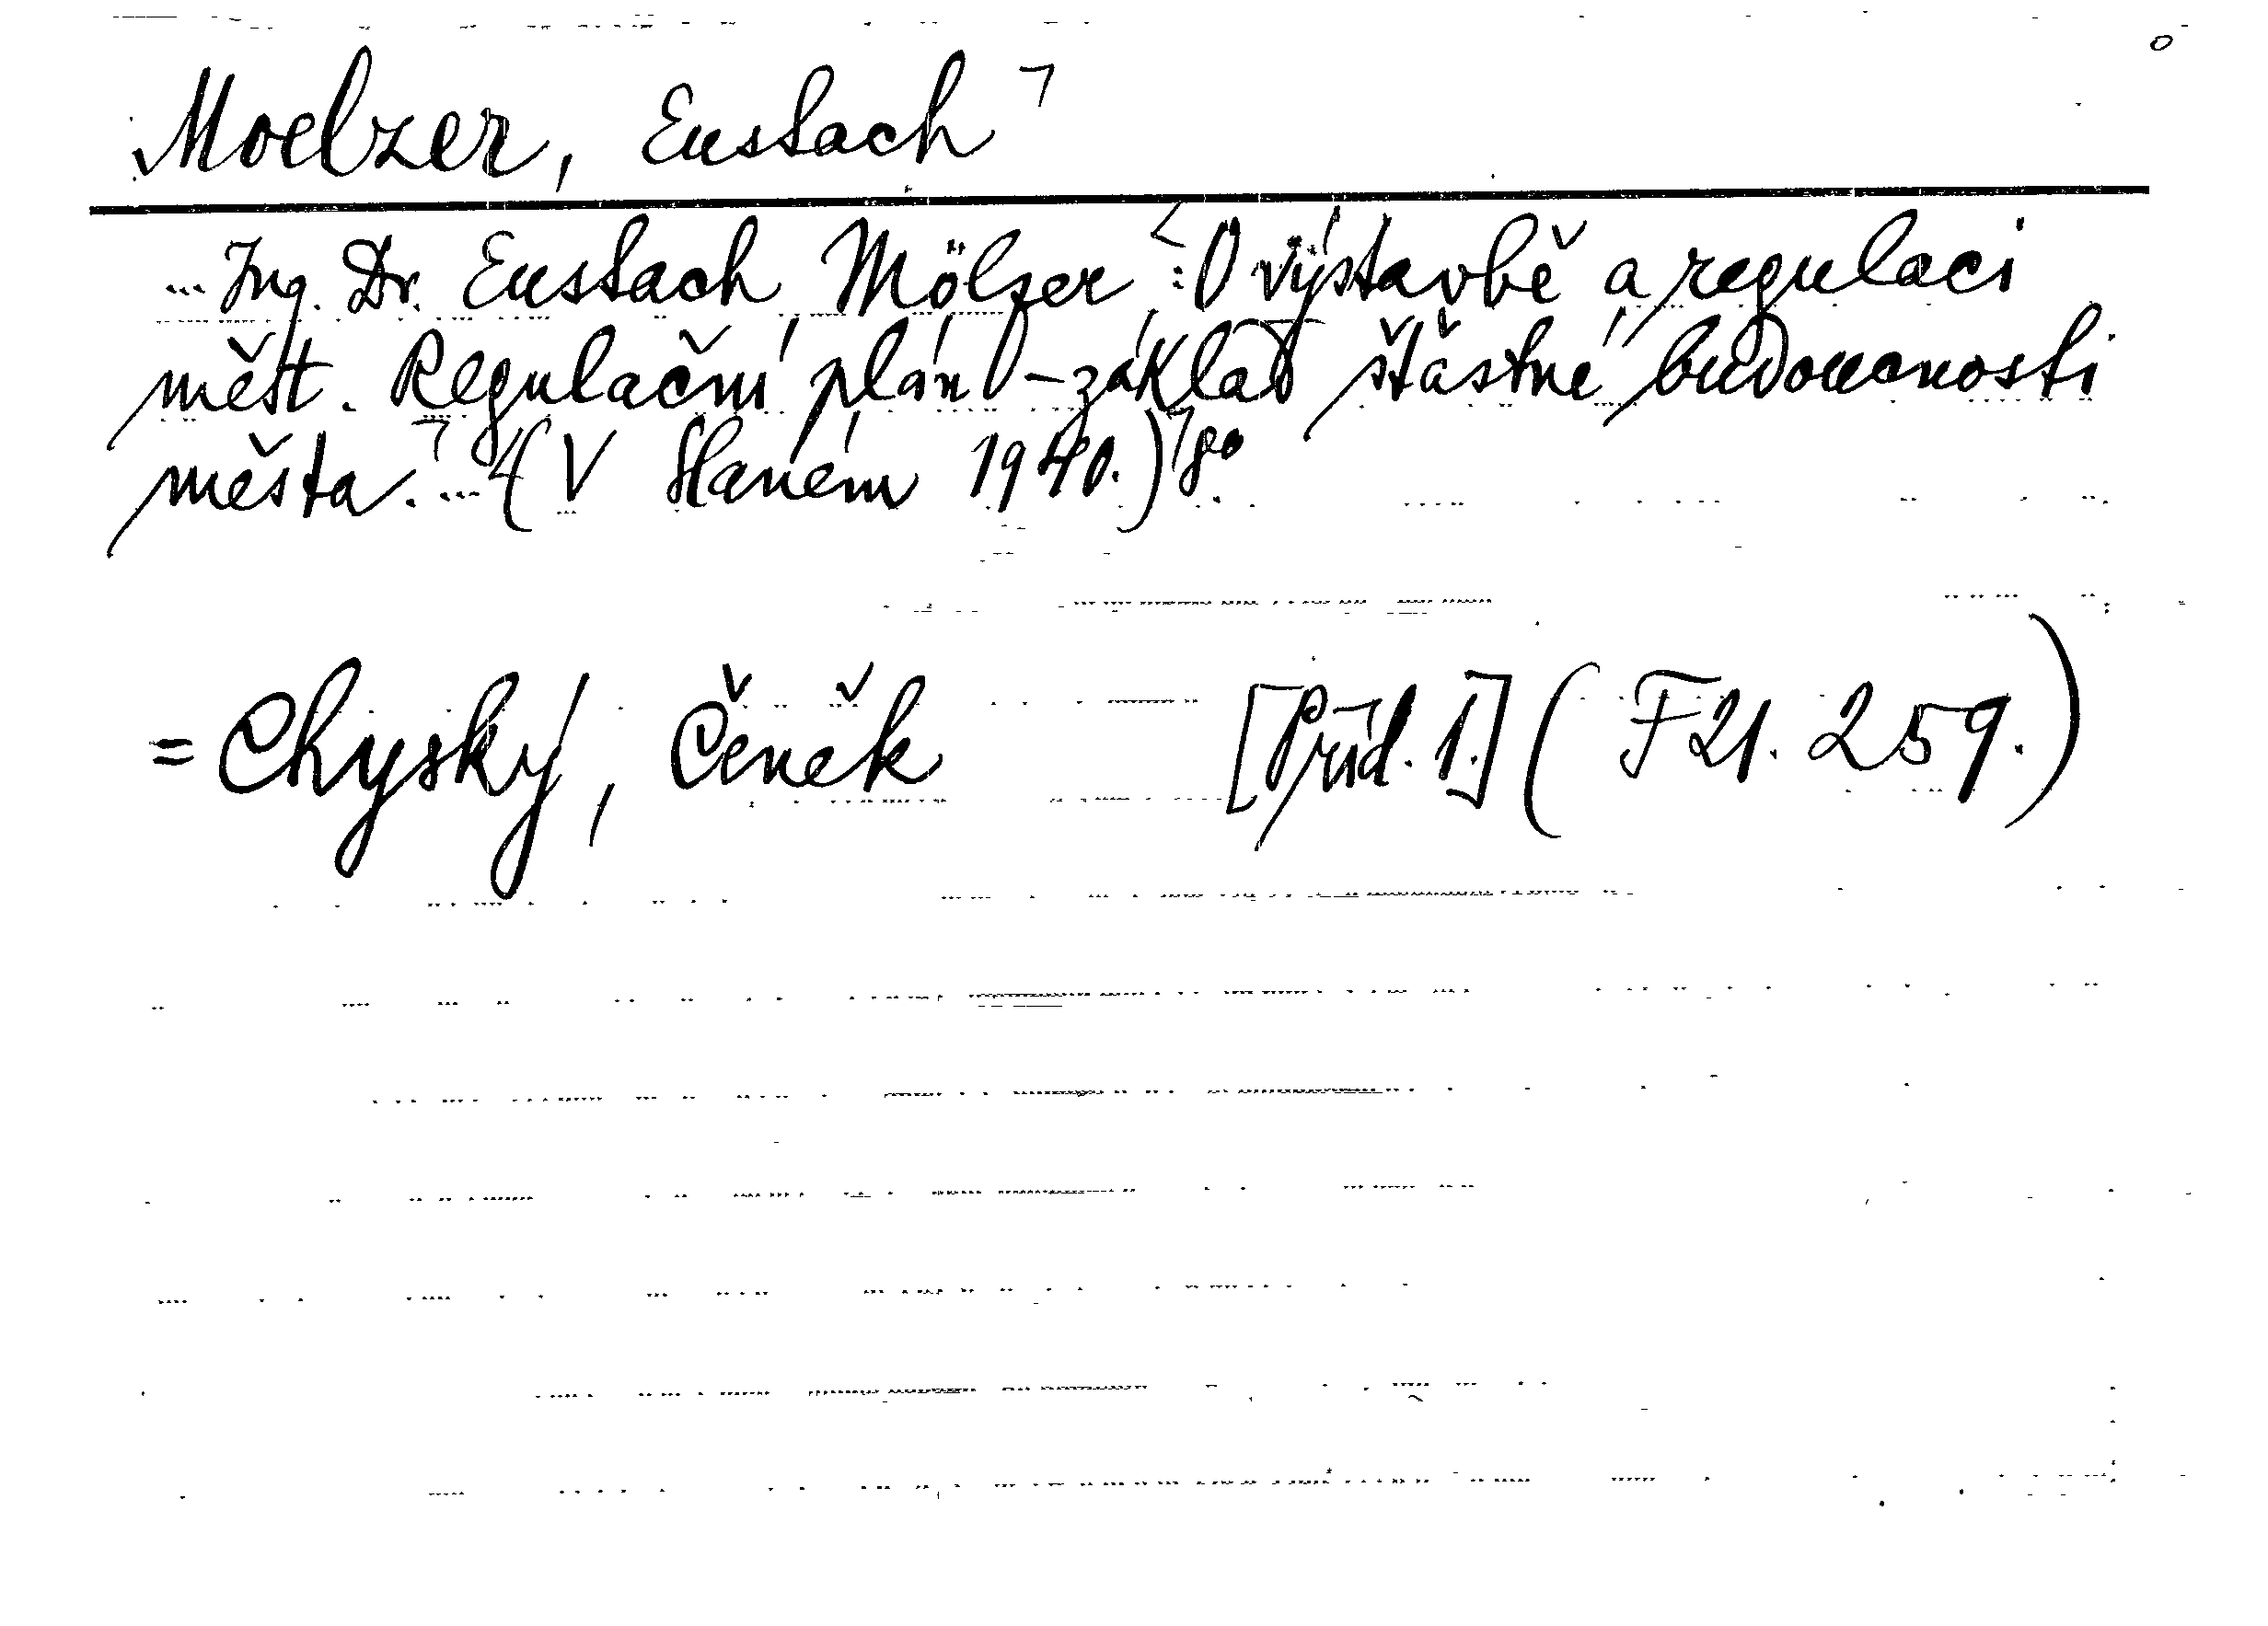 Moelzer, Eustach
... Ing. Dr. Eustach Mölzer : O výstavbě a regulaci
měst. Regulační plán – základ šťastné budoucnosti
města. ... (V Slaném 1940.) 8°.
= Chyský, Čeněk [Přid. 1.] (F 21. 259.)